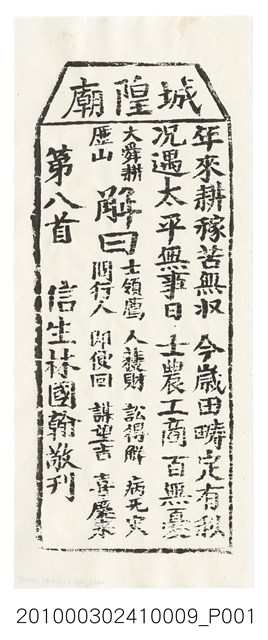 城隍廟
年來耕稼苦無收 今歲田疇定有秋
況遇太平無事日 士農工商百無憂
大舜耕歷山 解曰 士領薦 人獲財 訟得解 病無災
問行人 即便回 謀望吉 喜慶來
第八首 信生林國翰敬刊
201000302410009_P001